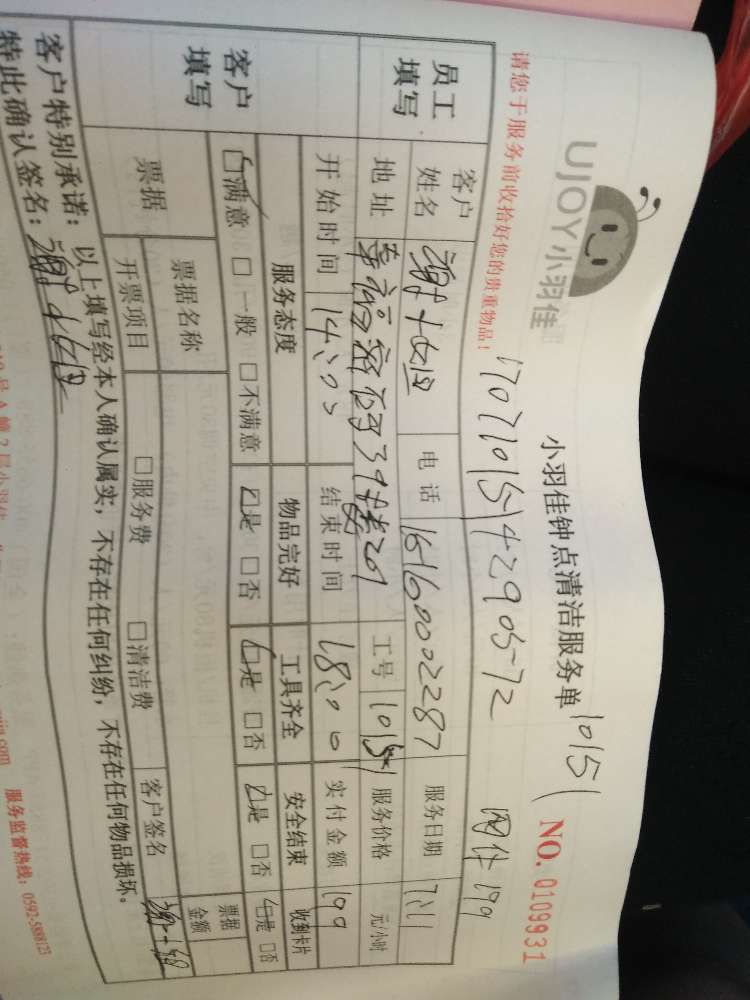 UJOY小羽佳
小羽佳钟点清洁服务单
10151
NO. 0109931
请您于服务前收拾好您的贵重物品！
网付 199
员工填写
客户姓名
电话
16160002287
服务日期
7.11
地址
工号
10151
服务价格
元/小时
开始时间
14:00
结束时间
18:00
实付金额
199
客户填写
服务态度
物品完好
工具齐全
安全结束
收到卡片
满意 □ 一般 □ 不满意
是 □ 否
是 □ 否
是 □ 否
是 □ 否
票据
票据名称
票据金额
开票项目
□ 服务费
□ 清洁费
客户签名
客户特别承诺：以上填写经本人确认属实，不存在任何纠纷，不存在任何物品损坏。
特此确认签名：
服务监督热线：0592-5888123